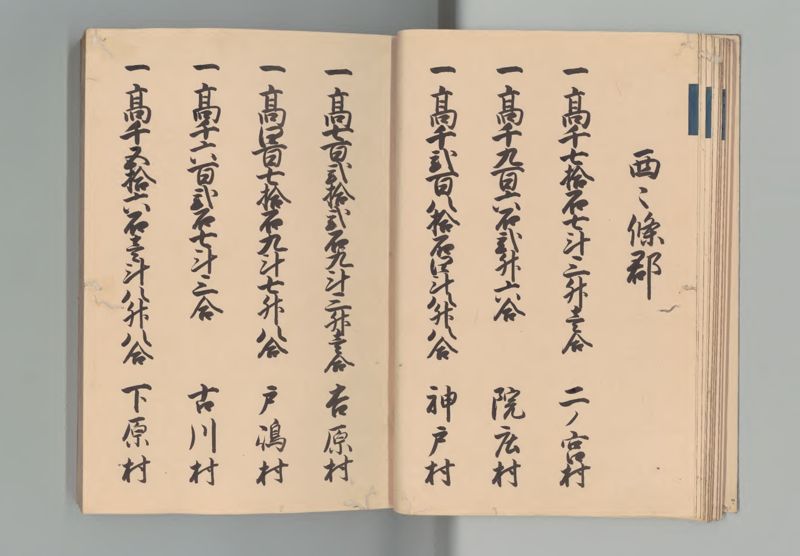 西々條郡
一 高千七拾石七斗三舛壹合 二ノ宮村
一 高千九百六石貳舛六合 院庄村
一 高千貳百八拾石四斗八舛八合 神戸村
一 高七百貳拾貳石九斗三舛壹合 吉原村
一 高四百七拾石九斗七舛八合 戸嶋村
一 高千六百貳石七斗三合 古川村
一 高千五拾六石壹斗八舛八合 下原村